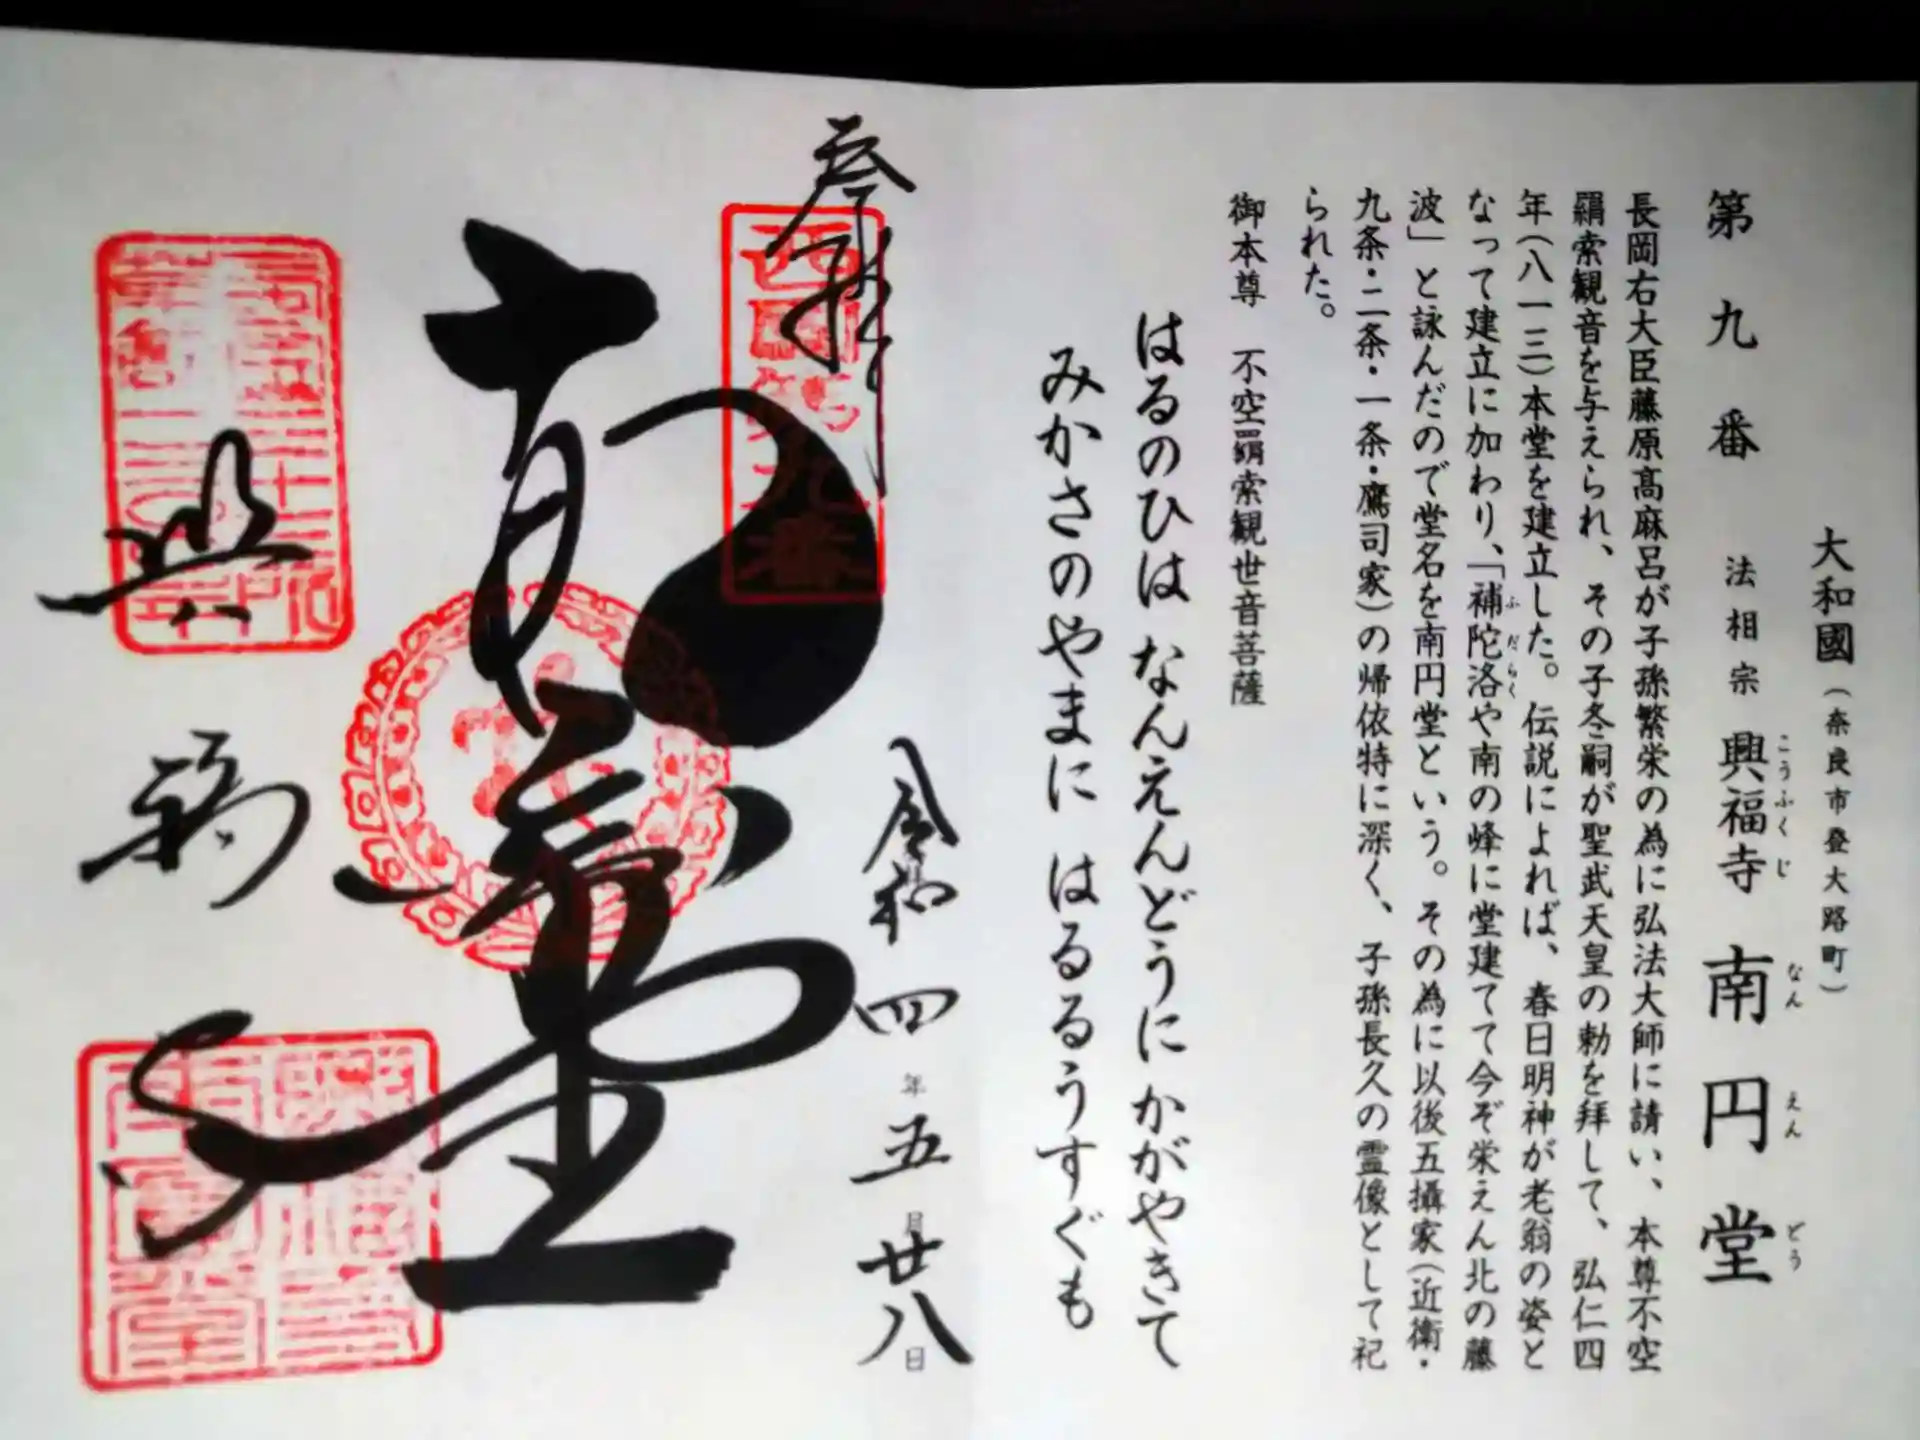 大和國（奈良市登大路町）
第九番　法相宗　興福寺　南円堂
こうふくじ　なんえんどう
長岡右大臣藤原髙麻呂が子孫繁栄の為に弘法大師に請い、本尊不空
羂索観音を与えられ、その子冬嗣が聖武天皇の勅を拝して、弘仁四
年（八一三）本堂を建立した。伝説によれば、春日明神が老翁の姿と
なって建立に加わり、「補陀洛や南の峰に堂建てて今ぞ栄えん北の藤
ふだらく
波」と詠んだので堂名を南円堂という。その為に以後五攝家（近衛・
九条・二条・一条・鷹司家）の帰依特に深く、子孫長久の霊像として祀
られた。
御本尊　不空羂索観世音菩薩
はるのひは なんえんどうに かがやきて
みかさのやまに はるるうすぐも
奉拝
西国第九番
令和四年五月廿八日
興福寺